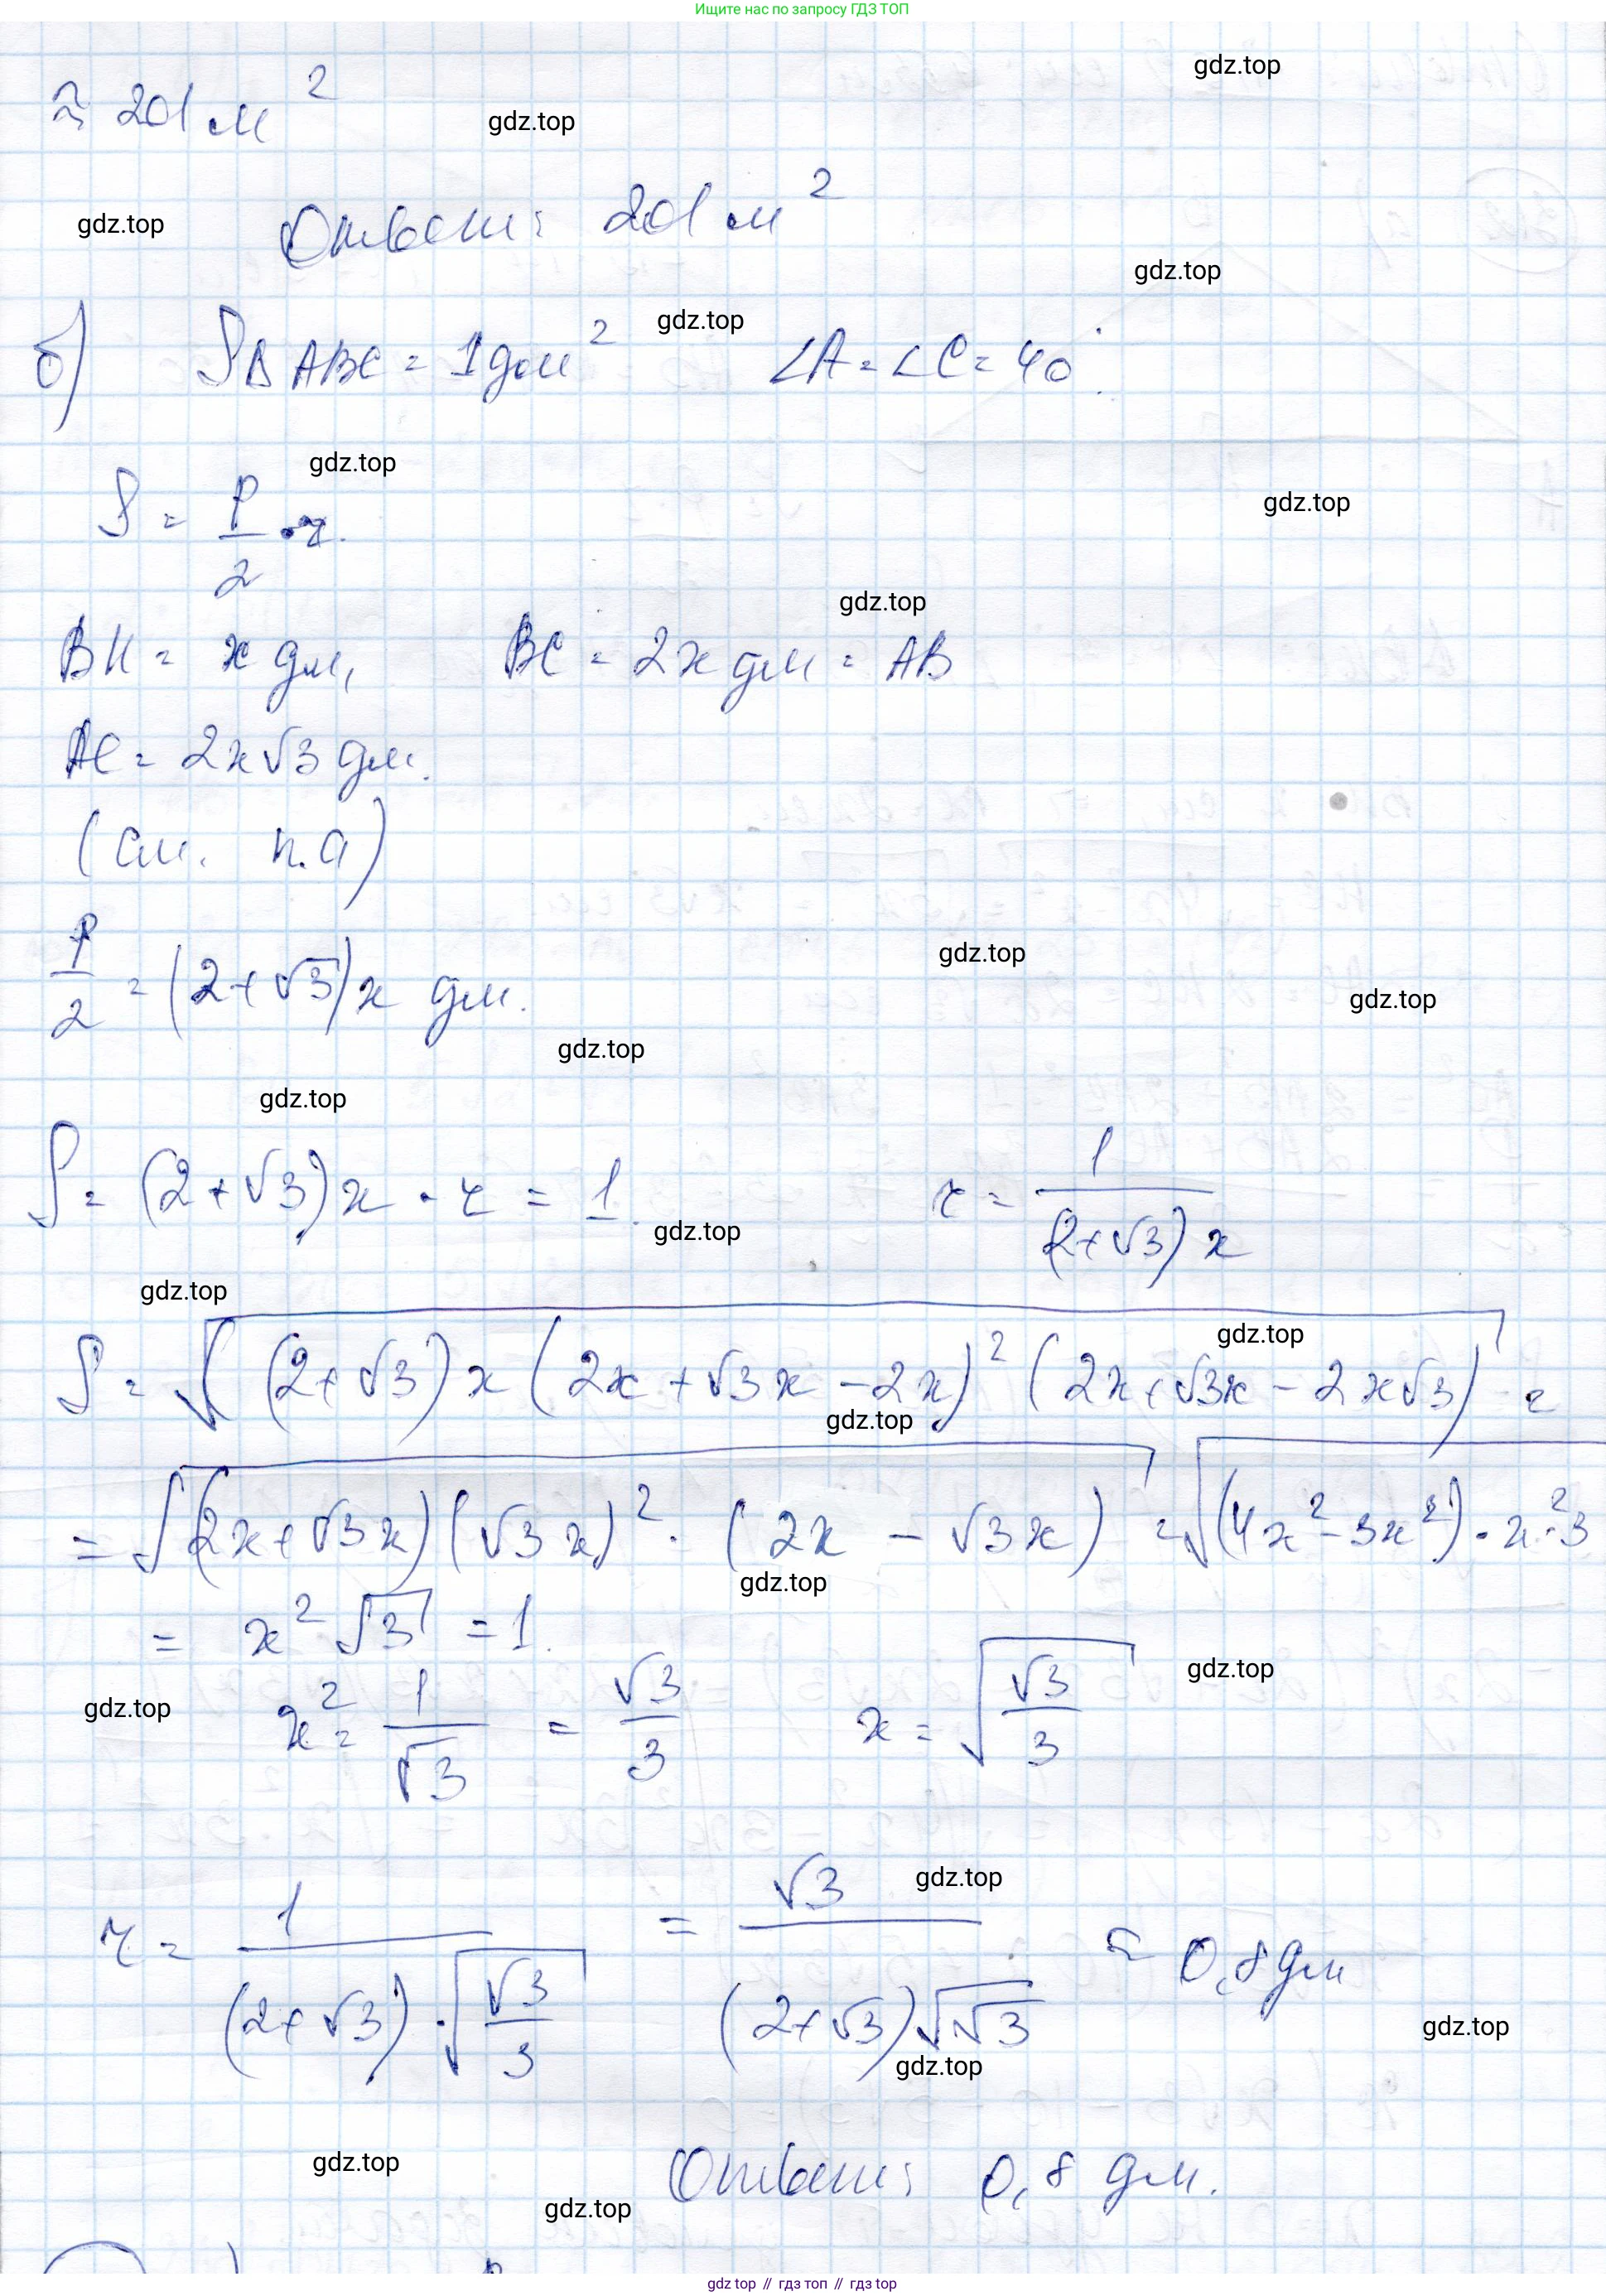 Ищите нас по запросу ГДЗ ТОП
gdz.top
≈ 201 м²
gdz.top
Ответ: 201 м²
gdz.top
gdz.top
б) S△ABC = 1 дм² ∠A = ∠C = 40°.
gdz.top
gdz.top
gdz.top
S = P/2 · r.
gdz.top
BH = x дм, BC = 2x дм = AB
AC = 2x√3 дм.
(см. п. а)
P/2 = (2+√3)x дм.
gdz.top
gdz.top
gdz.top
gdz.top
S = (2+√3)x · r = 1. r = 1/((2+√3)x)
gdz.top
gdz.top
gdz.top
S = √((2+√3)x(2x+√3x-2x)²(2x+√3x-2x√3)) =
gdz.top
= √((2x+√3x)(√3x)² · (2x-√3x)) = √((4x²-3x²)·x²·3
gdz.top
= x²√3 = 1.
gdz.top
gdz.top
x² = 1/√3 = √3/3 x = √(√3/3)
gdz.top
r = 1/((2+√3)·√(√3/3)) = √3/((2+√3)√√3) ≈ 0,8 дм
gdz.top
gdz.top
gdz.top
Ответ: 0,8 дм.
gdz.top
gdz top // гдз топ // гдз top